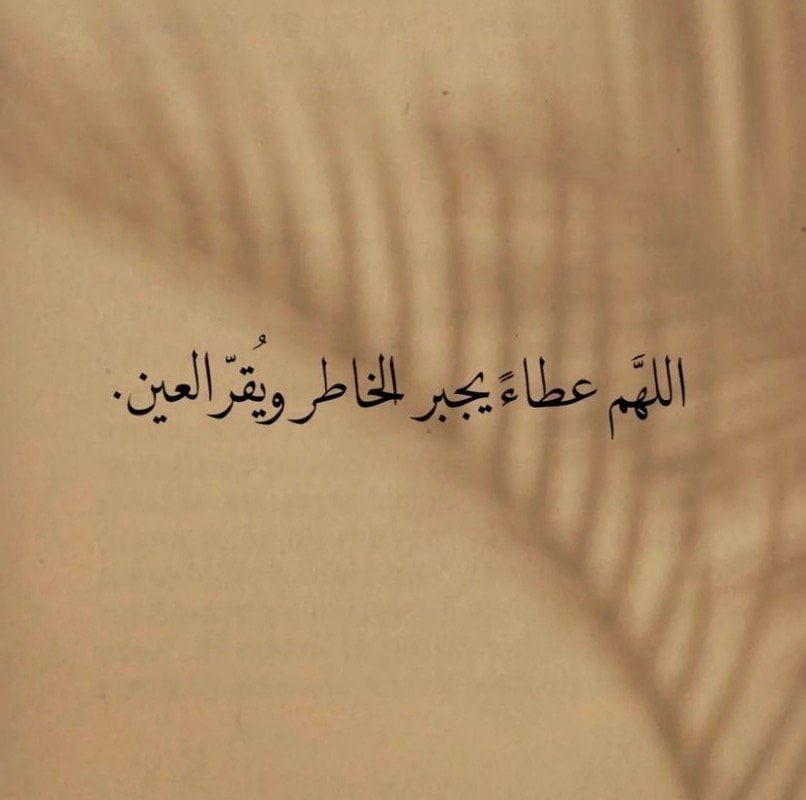 اللهَّم عطاءً يجبر الخاطر ويُقرّ العين.